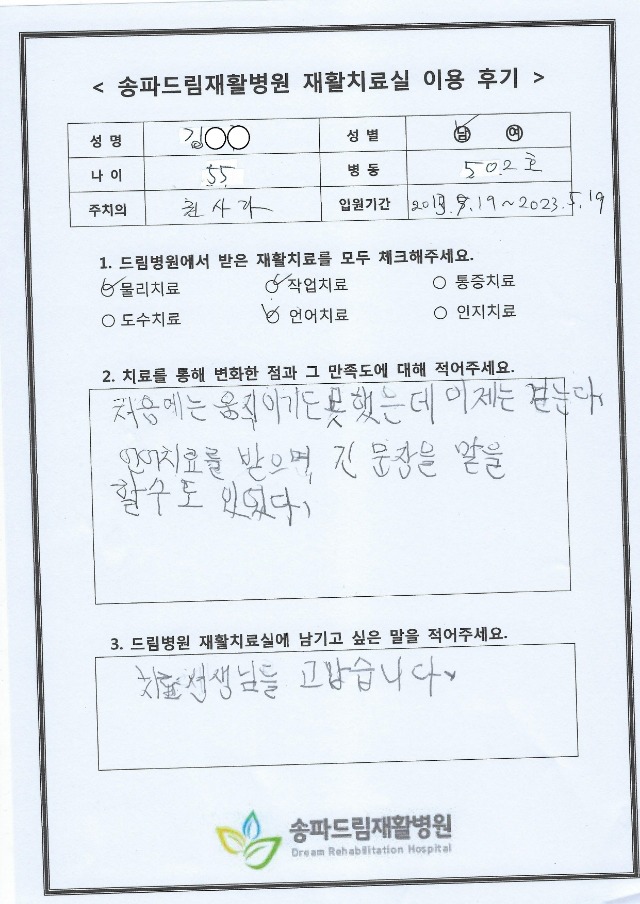 < 송파드림재활병원 재활치료실 이용 후기 >
성 명 김○○ 성 별 남 여
나 이 55 병 동 502호
주치의 입원기간 .19~2023.5.19
1. 드림병원에서 받은 재활치료를 모두 체크해주세요.
○ 물리치료 ○ 작업치료 ○ 통증치료
○ 도수치료 ○ 언어치료 ○ 인지치료
2. 치료를 통해 변화한 점과 그 만족도에 대해 적어주세요.
처음에는 움직이기도 못했는데 이제는 걷는다.
언어치료를 받으며, 긴 문장을 말을
할수도 있었다.
3. 드림병원 재활치료실에 남기고 싶은 말을 적어주세요.
치료선생님들 고맙습니다
송파드림재활병원
Dream Rehabilitation Hospital